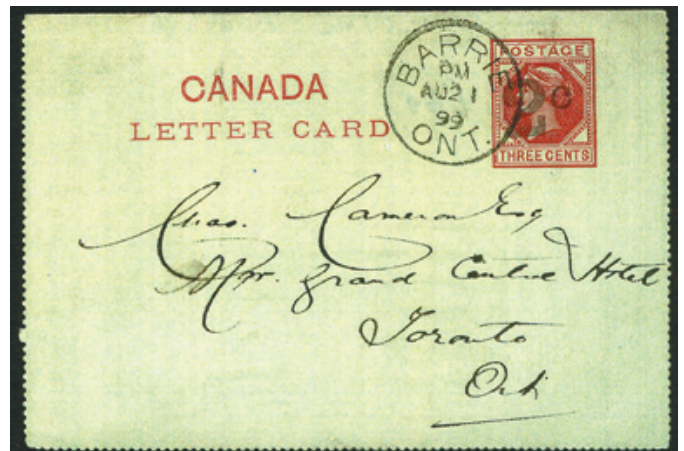 CANADA
LETTER CARD
BARRIE
PM
AU 21
99
ONT.
POSTAGE
2c
THREE CENTS
Chas. Cameron Esq
Mgr. Grand Central Hotel
Toronto
Ont